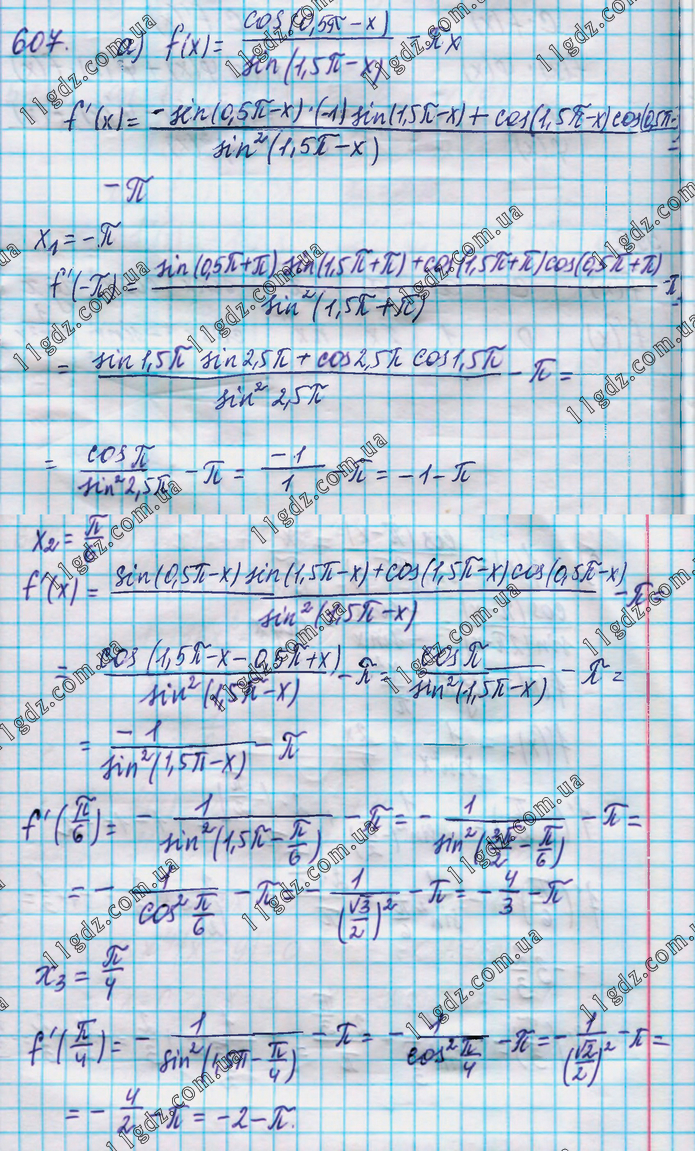 607. а) f(x) = cos(0,5π-x) / sin(1,5π-x) - πx
f'(x) = -sin(0,5π-x)·(-1) sin(1,5π-x) + cos(1,5π-x) cos(0,5π- / sin²(1,5π-x) =
-π
x₁ = -π
f'(-π) = sin(0,5π+π) sin(1,5π+π) + cos(1,5π+π) cos(0,5π+π) / sin²(1,5π+π) - π =
= sin 1,5π sin 2,5π + cos 2,5π cos 1,5π / sin² 2,5π - π =
= cos π / sin² 2,5π - π = -1 / 1 - π = -1 - π
x₂ = π/6
f'(x) = sin(0,5π-x) sin(1,5π-x) + cos(1,5π-x) cos(0,5π-x) / sin²(1,5π-x) - π =
= cos(1,5π-x-0,5π+x) / sin²(1,5π-x) - π = cos π / sin²(1,5π-x) - π =
= -1 / sin²(1,5π-x) - π
f'(π/6) = - 1 / sin²(1,5π - π/6) - π = - 1 / sin²(3π/2 - π/6) - π =
= - 1 / cos² π/6 - π = - 1 / (√3/2)² - π = - 4/3 - π
x₃ = π/4
f'(π/4) = - 1 / sin²(1,5π - π/4) - π = - 1 / cos² π/4 - π = - 1 / (√2/2)² - π =
= - 4/2 - π = -2 - π.
11gdz.com.ua